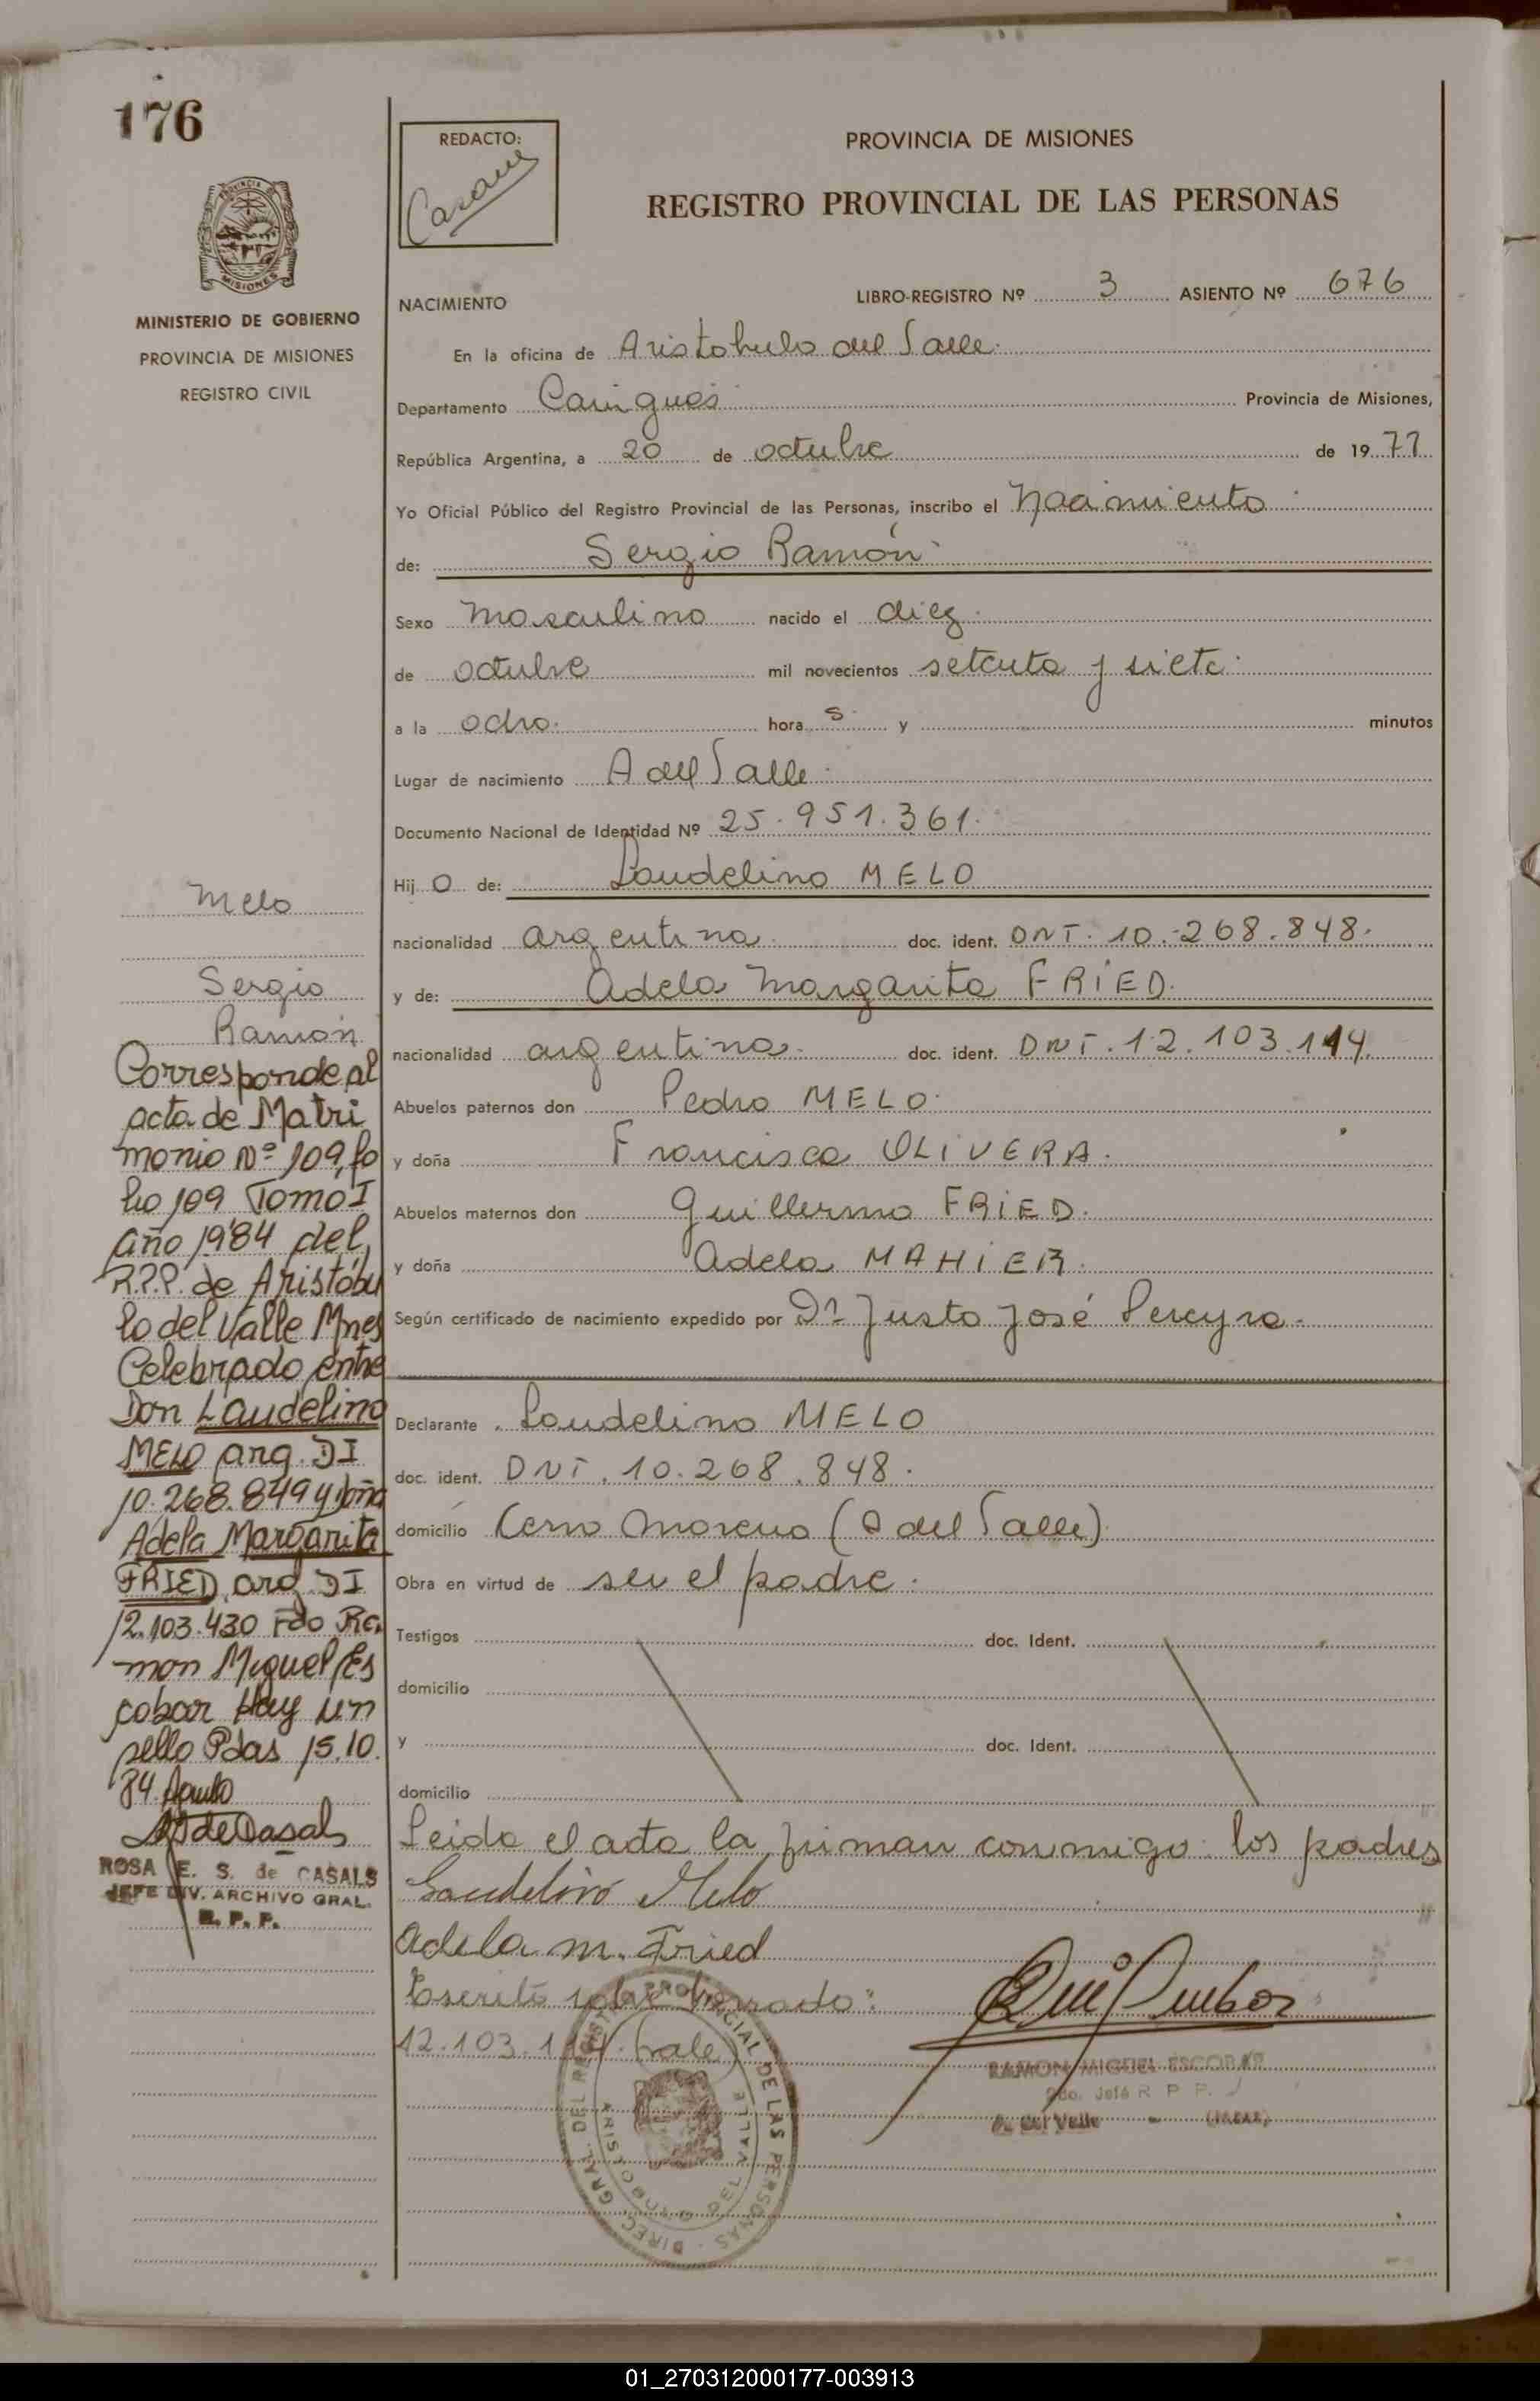 176
MINISTERIO DE GOBIERNO
PROVINCIA DE MISIONES
REGISTRO CIVIL
Melo
Sergio
Ramón
Corresponde al
acta de Matri
monio Nº 109, fo
lio 109 Tomo I
año 1984 del
R.P.P. de Aristóbu
lo del Valle Mnes
Celebrado entre
Don Laudelino
MELO arg. DI
10.268.849 y doña
Adela Margarita
FRIED arg. DI
12.103.430 Fdo Ra
mon Miguel Es
cobar Hay un
sello Pdas 15.10.
84.
ROSA E. S. de CASALS
JEFE DIV. ARCHIVO GRAL.
R. P. P.
REDACTO:
PROVINCIA DE MISIONES
REGISTRO PROVINCIAL DE LAS PERSONAS
NACIMIENTO LIBRO-REGISTRO Nº 3 ASIENTO Nº 676
En la oficina de Aristobulo del Valle
Departamento Cainguás Provincia de Misiones,
República Argentina, a 20 de octubre de 1977
Yo Oficial Público del Registro Provincial de las Personas, inscribo el Nacimiento
de: Sergio Ramón
Sexo Masculino nacido el diez
de octubre mil novecientos setenta y siete
a la ocho hora s y minutos
Lugar de nacimiento A del Valle
Documento Nacional de Identidad Nº 25.951.361
Hij o de: Laudelino MELO
nacionalidad argentina doc. ident. DNI. 10.268.848.
y de: Adela Margarita FRIED.
nacionalidad argentina doc. ident. DNI. 12.103.114.
Abuelos paternos don Pedro MELO
y doña Francisca OLIVERA.
Abuelos maternos don Guillermo FRIED.
y doña Adela MAHIER.
Según certificado de nacimiento expedido por Dr Justo José Pereyra
Declarante Laudelino MELO
doc. ident. DNI. 10.268.848.
domicilio Cerro Moreno (A del Valle)
Obra en virtud de ser el padre.
Testigos doc. Ident.
domicilio
y doc. Ident.
domicilio
Leida el acta la firman conmigo los padres
Laudelino Melo
Adela M. Fried
Escrito sobre borrado:
12.103.114. Vale
RAMON MIGUEL ESCOBAR
2do. Jefe R P P.
A. del Valle - (Mnes)
DIREC. GRAL. DEL REGISTRO PROVINCIAL DE LAS PERSONAS
ARISTOBULO DEL VALLE
01_270312000177-003913